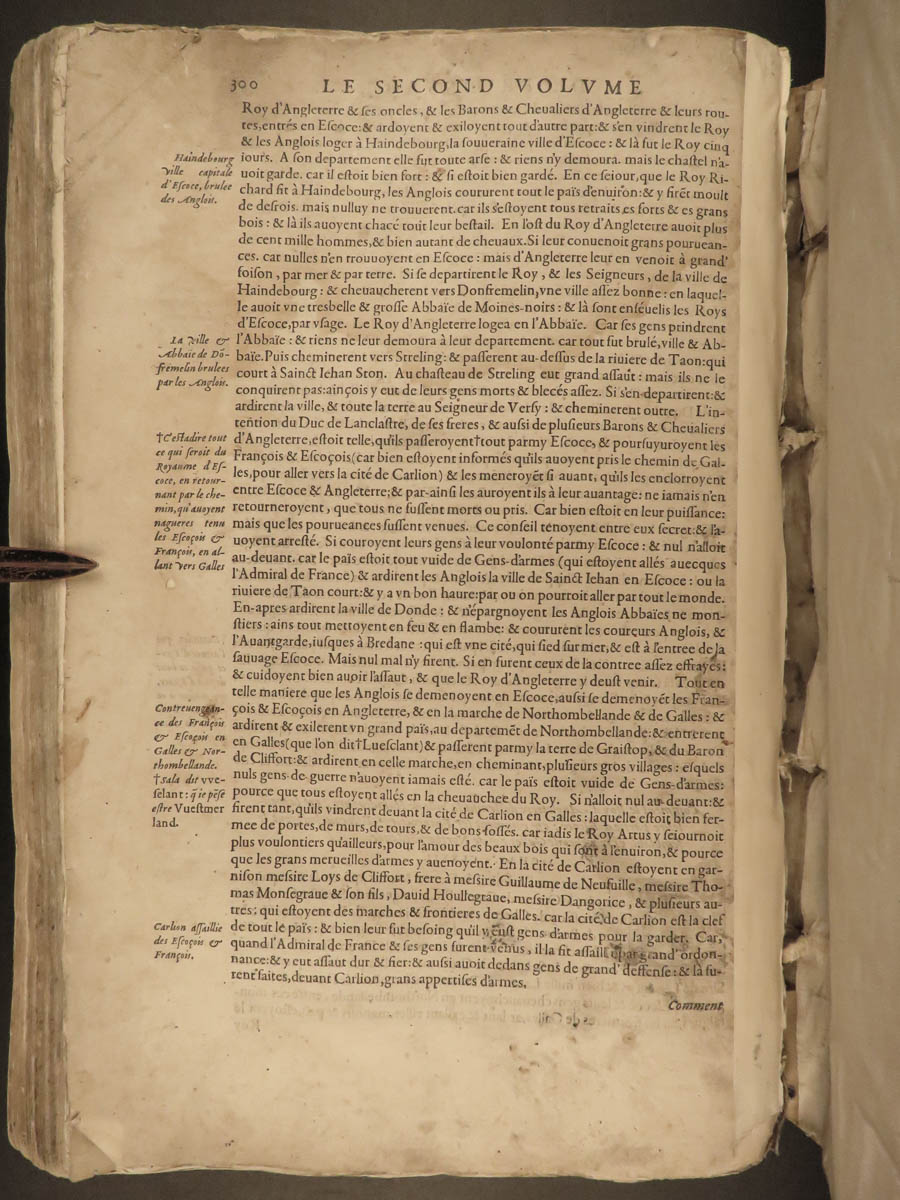 300 LE SECOND VOLVME
Roy d'Angleterre & ſes oncles, & les Barons & Cheualiers d'Angleterre & leurs rou-
tes, entrés en Eſcoce: & ardoyent & exiloyent tout d'autre part: & s'en vindrent le Roy
& les Anglois loger à Haindebourg, la ſouueraine ville d'Eſcoce: & là fut le Roy cinq
iours. A ſon departement elle fut toute arſe: & riens n'y demoura. mais le chaſtel n'a-
uoit garde. car il eſtoit bien fort: & ſi eſtoit bien gardé. En ce ſeiour, que le Roy Ri-
chard fit à Haindebourg, les Anglois coururent tout le païs d'enuiron: & y firẽt moult
de deſrois. mais nulluy ne trouuerent. car ils s'eſtoyent tous retraits es forts & es grans
bois: & là ils auoyent chacé tout leur beſtail. En l'oſt du Roy d'Angleterre auoit plus
de cent mille hommes, & bien autant de cheuaux. Si leur conuenoit grans pourueան-
ces. car nulles n'en trouuoyent en Eſcoce: mais d'Angleterre leur en venoit à grand'
foiſon, par mer & par terre. Si ſe departirent le Roy, & les Seigneurs, de la ville de
Haindebourg: & cheuaucherent vers Donfremelin, vne ville aſſez bonne: en laquel-
le auoit vne tresbelle & groſſe Abbaïe de Moines-noirs: & là ſont enſeuelis les Roys
d'Eſcoce, par vſage. Le Roy d'Angleterre logea en l'Abbaïe. Car ſes gens prindrent
l'Abbaïe: & riens ne leur demoura à leur departement. car tout fut brulé, ville & Ab-
baïe. Puis cheminerent vers Streling: & paſſerent au-deſſus de la riuiere de Taon: qui
court à Sainct Iehan Ston. Au chaſteau de Streling eut grand aſſaut: mais ils ne le
conquirent pas: ainçois y eut de leurs gens morts & blecés aſſez. Si s'en departirent: &
ardirent la ville, & toute la terre au Seigneur de Verſy: & cheminerent outre. L'in-
tention du Duc de Lanclaſtre, de ſes freres, & auſsi de pluſieurs Barons & Cheualiers
d'Angleterre, eſtoit telle, qu'ils paſſeroyent †tout parmy Eſcoce, & pourſuyuroyent les
François & Eſcoçois (car bien eſtoyent informés qu'ils auoyent pris le chemin de Gal-
les, pour aller vers la cité de Carlion) & les meneroyẽt ſi auant, qu'ils les enclorroyent
entre Eſcoce & Angleterre; & par-ainſi les auroyent ils à leur auantage: ne iamais n'en
retourneroyent, que tous ne fuſſent morts ou pris. Car bien eſtoit en leur puiſſance:
mais que les pourueances fuſſent venues. Ce conſeil tenoyent entre eux ſecret: & l'a-
uoyent arreſté. Si couroyent leurs gens à leur voulonté parmy Eſcoce: & nul n'alloit
au-deuant. car le païs eſtoit tout vuide de Gens-d'armes (qui eſtoyent allés auecques
l'Admiral de France) & ardirent les Anglois la ville de Sainct Iehan en Eſcoce: ou la
riuiere de Taon court: & y a vn bon haure: par ou on pourroit aller par tout le monde.
En-apres ardirent la ville de Donde: & n'épargnoyent les Anglois Abbaïes ne mon-
ſtiers: ains tout mettoyent en feu & en flambe: & coururent les coureurs Anglois, &
l'Auantgarde, iuſques à Bredane: qui eſt vne cité, qui ſied ſur mer, & eſt à l'entree de la
ſauuage Eſcoce. Mais nul mal n'y firent. Si en furent ceux de la contree aſſez effrayés:
& cuidoyent bien auoir l'aſſaut, & que le Roy d'Angleterre y deuſt venir. Tout en
telle maniere que les Anglois ſe demenoyent en Eſcoce, auſsi ſe demenoyẽt les Fran-
çois & Eſcoçois en Angleterre, & en la marche de Northombellande & de Galles: &
ardirent & exilerent vn grand païs, au departemẽt de Northombellande: & entrerent
en Galles (que l'on dit †Lueſclant) & paſſerent parmy la terre de Graiſtop, & du Baron
de Cliffort: & ardirent en celle marche, en cheminant, pluſieurs gros villages: eſquels
nuls gens-de-guerre n'auoyent iamais eſté. car le païs eſtoit vuide de Gens-d'armes:
pource que tous eſtoyent allés en la cheuauchee du Roy. Si n'alloit nul au-deuant: &
firent tant, qu'ils vindrent deuant la cité de Carlion en Galles: laquelle eſtoit bien fer-
mee de portes, de murs, de tours, & de bons-foſſés. car iadis le Roy Artus y ſeiournoit
plus voulontiers qu'ailleurs, pour l'amour des beaux bois qui ſont à l'enuiron, & pource
que les grans merueilles d'armes y auenoyent. En la cité de Carlion eſtoyent en gar-
niſon meſsire Loys de Cliffort, frere à meſsire Guillaume de Neufuille, meſsire Tho-
mas Monſegraue & ſon fils, Dauid Houllegraue, meſsire Dangorice, & pluſieurs au-
tres: qui eſtoyent des marches & frontieres de Galles. car la cité de Carlion eſt la clef
de tout le païs: & bien leur fut beſoing qu'il y euſt gens d'armes pour la garder. Car,
quand l'Admiral de France & ſes gens furent venus, il la fit aſſaillir par grand' ordon-
nance: & y eut aſſaut dur & fier: & auſsi auoit dedans gens de grand' deffenſe: & là fu-
rent faites, deuant Carlion, grans appertiſes d'armes.
Comment
Haindebourg
ville capitale
d'Eſcoce, brulee
des Anglois.
La ville &
Abbaïe de Dõ-
fremelin brulees
par les Anglois.
†C'eſtadire tout
ce qui ſeroit du
Royaume d'Eſ-
coce, en retour-
nant par le che-
min, qu'auoyent
nagueres tenu
les Eſcoçois &
François, en al-
lant vers Galles
Contreuengean-
ce des François
& Eſcoçois en
Galles & Nor-
thombellande.
†Sala dit vve-
ſelant: q̃ ie pẽſe
eſtre Vueſtmer
land.
Carlion aſſaillie
des Eſcoçois &
François.